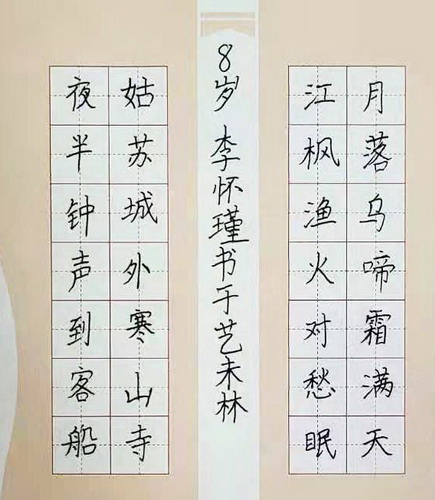 月落乌啼霜满天
江枫渔火对愁眠
8岁 李怀瑾书于艺未林
姑苏城外寒山寺
夜半钟声到客船